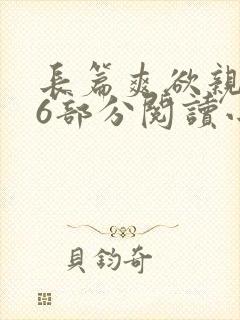 長篇爽欲親
6部分閱讀
貝鈞奇